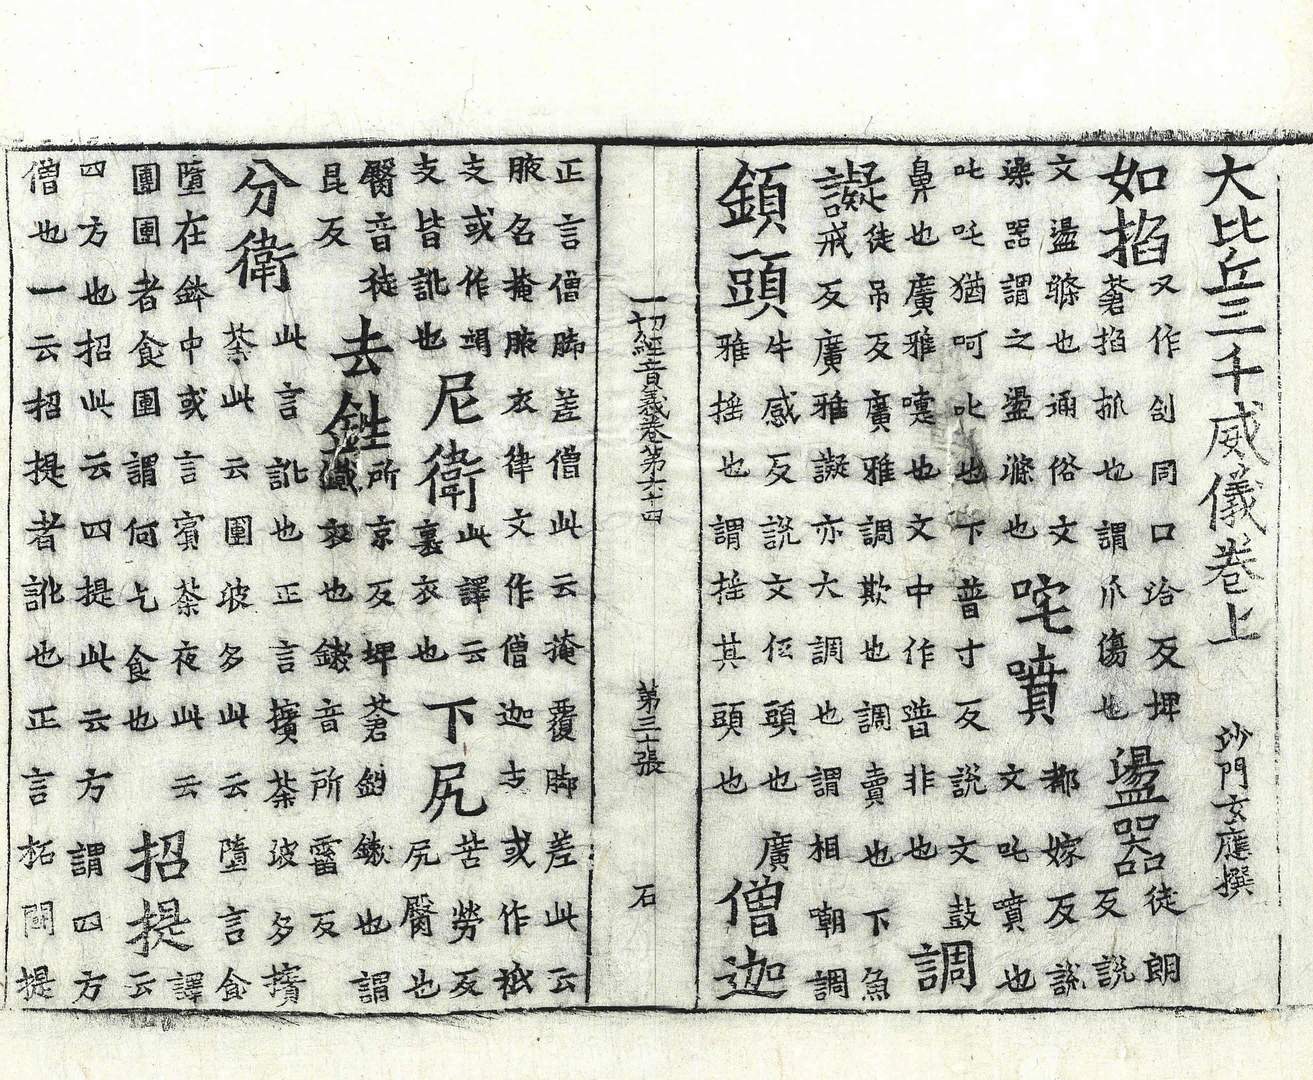 大比丘三千威儀卷上 沙門玄應撰
如掐又作刮同口洽反埤蒼掐抓也謂爪傷也盪器徒朗反說
文盪滌也通俗文澡器謂之盪滌也咤噴都嫁反說文吒噴也
吒吒猶呵叱也下普寸反說文鼓鼻也廣雅嚏也文中作普非也調
譺徒吊反廣雅調欺也調賣也下魚戒反廣雅譺亦大調也謂相嘲調
鎖頭牛感反說文伍頭也廣雅搖也謂搖其頭也僧迦
一切經音義卷第六十四 第三十張 石
正言僧脚差僧此云掩覆脚差此云腋名掩腋衣律文作僧迦支或作祗
支或作竭支皆訛也尼衛此譯云裏衣也下尻苦勞反尻臀也
臀音徒昆反去銼所京反埤蒼銼鏉也謂鐵衣也鏉音所霤反
分衛此言訛也正言擯荼波多擯荼此云團波多此云墮言食
墮在鉢中或言賓荼夜此云團團者食團謂何乞食也招提譯云
四方也招此云四提此云方謂四方僧也一云招提者訛也正言柘鬪提